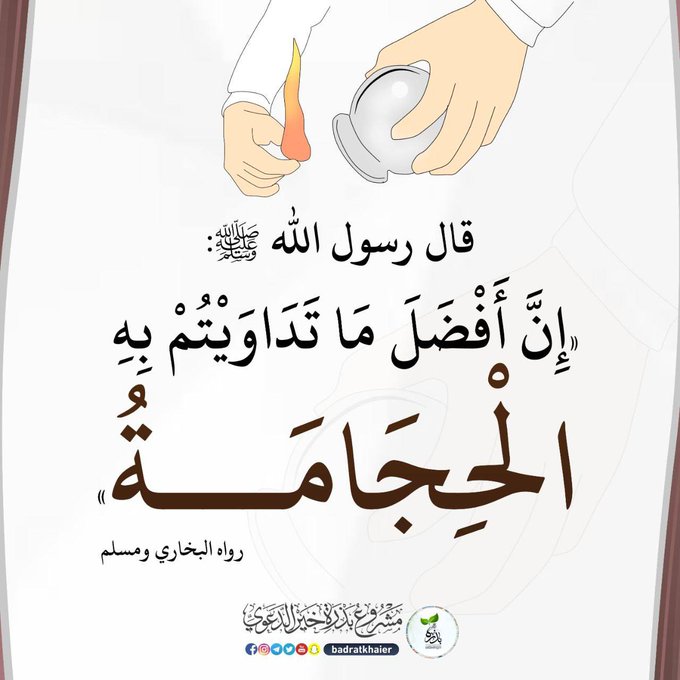 قال رسول الله ﷺ:
«إِنَّ أَفْضَلَ مَا تَدَاوَيْتُمْ بِهِ
الْحِجَامَـــةُ»
رواه البخاري ومسلم
مشروع بذرة خير الدعوي
badratkhaier
بذرة